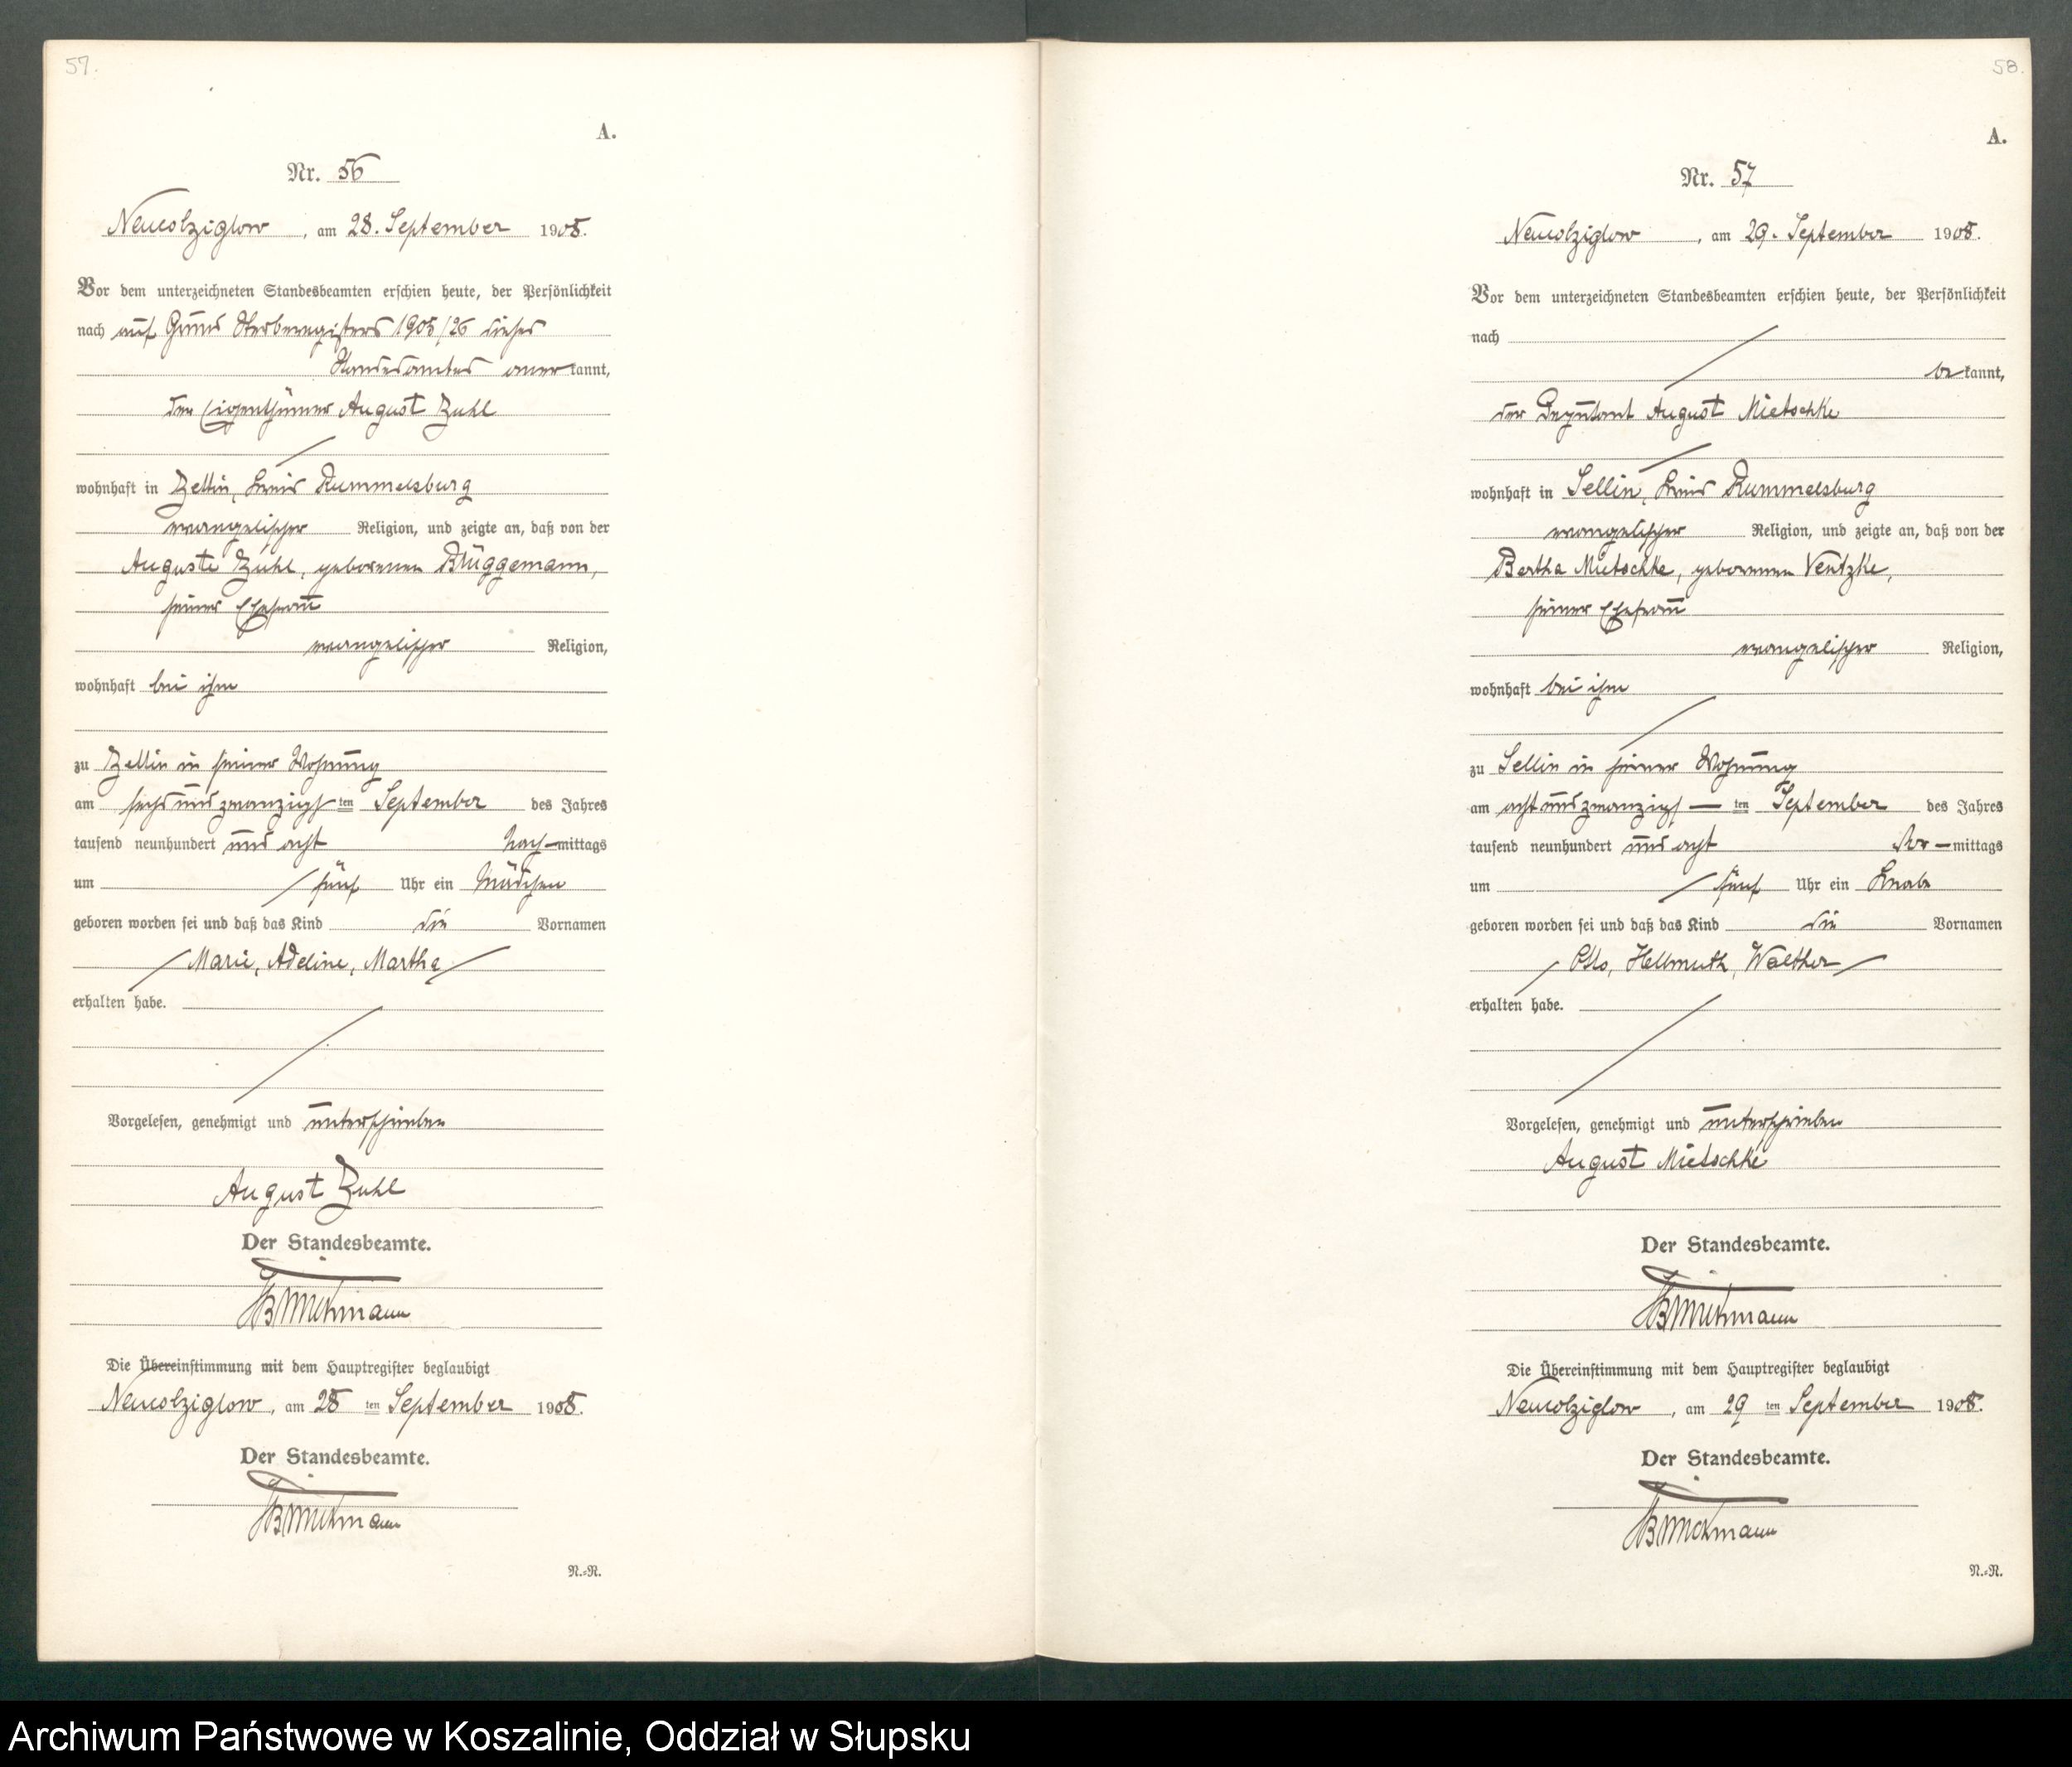 57.
A.
Nr. 56
Neukolziglow, am 28. September 1908.
Vor dem unterzeichneten Standesbeamten erschien heute, der Persönlichkeit
nach auf Grund Sterberegisters 1905/26 dieses
Standesamtes anerkannt,
der Eigenthümer August Zuhl
wohnhaft in Zettin, Kreis Rummelsburg
evangelischer Religion, und zeigte an, daß von der
Auguste Zuhl, geborenen Brüggemann,
seiner Ehefrau
evangelischer Religion,
wohnhaft bei ihm
zu Zettin in seiner Wohnung
am sechs und zwanzigsten September des Jahres
tausend neunhundert und acht Nach-mittags
um fünf Uhr ein Mädchen
geboren worden sei und daß das Kind die Vornamen
Marie, Adeline, Martha
erhalten habe.
Vorgelesen, genehmigt und unterschrieben
August Zuhl
Der Standesbeamte.
Die Übereinstimmung mit dem Hauptregister beglaubigt
Neukolziglow, am 28 ten September 1908.
Der Standesbeamte.
N.=R.
58.
A.
Nr. 57
Neukolziglow, am 29. September 1908.
Vor dem unterzeichneten Standesbeamten erschien heute, der Persönlichkeit
nach
bekannt,
der Deputant August Mietschke
wohnhaft in Sellin, Kreis Rummelsburg
evangelischer Religion, und zeigte an, daß von der
Bertha Mietschke, geborenen Ventzke,
seiner Ehefrau
evangelischer Religion,
wohnhaft bei ihm
zu Sellin in seiner Wohnung
am acht und zwanzigs—ten September des Jahres
tausend neunhundert und acht Vor—mittags
um fünf Uhr ein Knabe
geboren worden sei und daß das Kind die Vornamen
Otto, Hellmuth, Walther
erhalten habe.
Vorgelesen, genehmigt und unterschrieben
August Mietschke
Der Standesbeamte.
Die Übereinstimmung mit dem Hauptregister beglaubigt
Neukolziglow, am 29 ten September 1908.
Der Standesbeamte.
N.=R.
Archiwum Państwowe w Koszalinie, Oddział w Słupsku